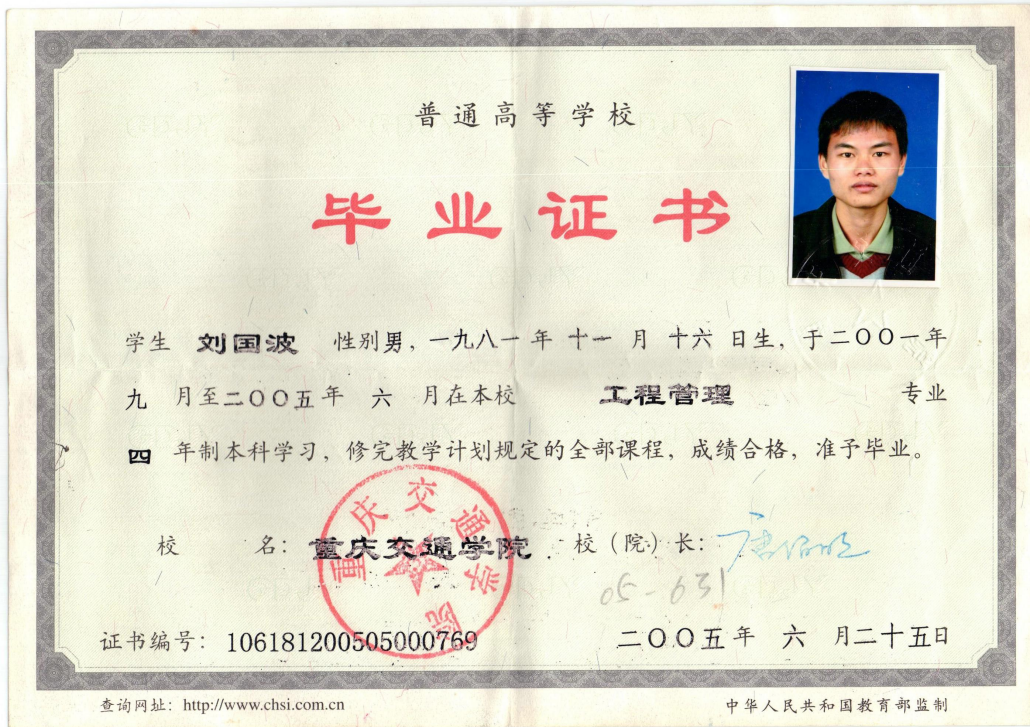 普通高等学校
毕业证书
学生 刘国波 性别男，一九八一年 十一 月 十六 日生，于二〇〇一年
九 月至二〇〇五年 六 月在本校 工程管理 专业
四 年制本科学习，修完教学计划规定的全部课程，成绩合格，准予毕业。
校 名：重庆交通学院 校（院）长：唐伯明
重庆交通学院
05-631
证书编号：106181200505000769 二〇〇五年 六 月二十五日
查询网址：http://www.chsi.com.cn 中华人民共和国教育部监制